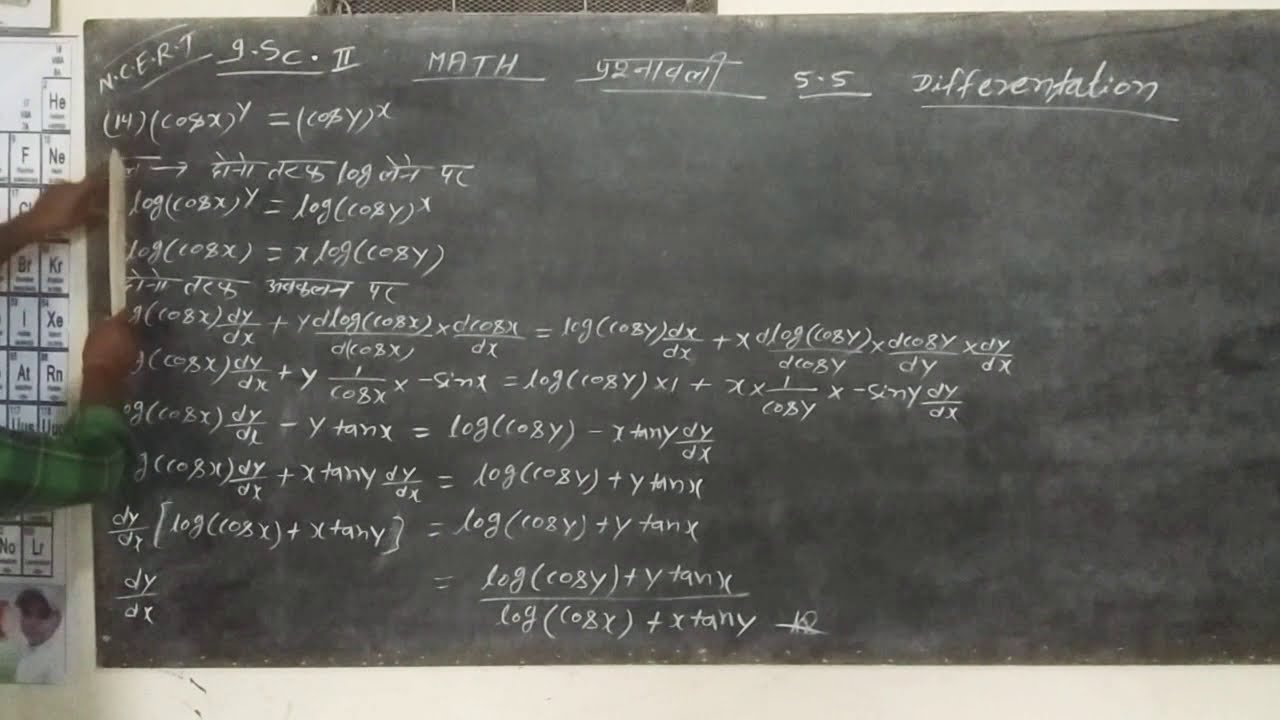 N.C.E.R.T I.Sc. II MATH प्रश्नावली 5.5 Differentation
(14) (cosx)^y = (cosy)^x
→ दोनो तरफ log लेने पर
log(cosx)^y = log(cosy)^x
log(cosx) = x log(cosy)
दोनो तरफ अवकलन पर
g(cosx) dy/dx + y dlog(cosx)/d(cosx) × dcosx/dx = log(cosy) dx/dx + x dlog(cosy)/dcosy × dcosy/dy × dy/dx
g(cosx) dy/dx + y 1/cosx × -sinx = log(cosy) × 1 + x × 1/cosy × -siny dy/dx
og(cosx) dy/dx - y tanx = log(cosy) - x tany dy/dx
g(cosx) dy/dx + x tany dy/dx = log(cosy) + y tanx
dy/dx [log(cosx) + x tany] = log(cosy) + y tanx
dy/dx = log(cosy) + y tanx / log(cosx) + x tany
He
F Ne
Cl
Br Kr
I Xe
At Rn
No Lr